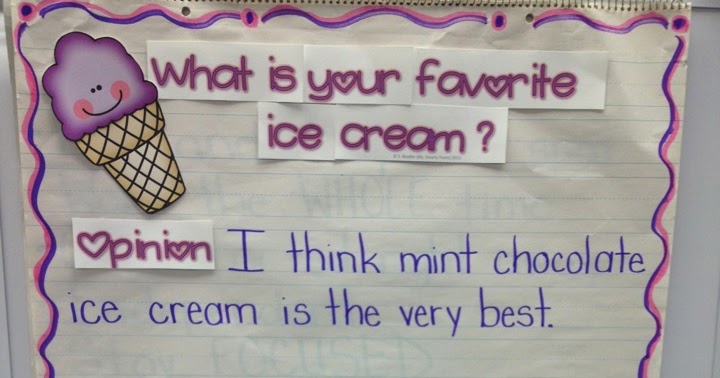 What is your favorite
ice cream?
Opinion I think mint chocolate
ice cream is the very best.